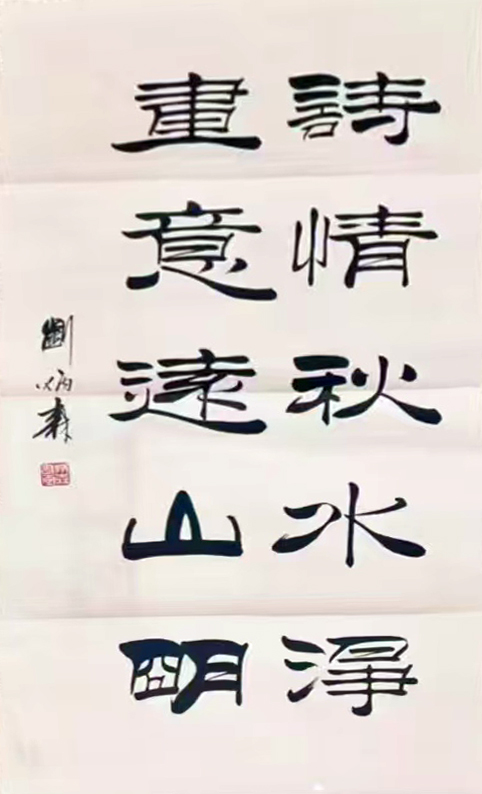 詩情秋水淨
畫意遠山明
劉炳森